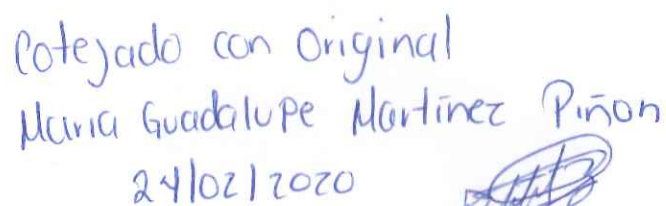 Cotejado con Original
Maria Guadalupe Martínez Piñon
24/02/2020